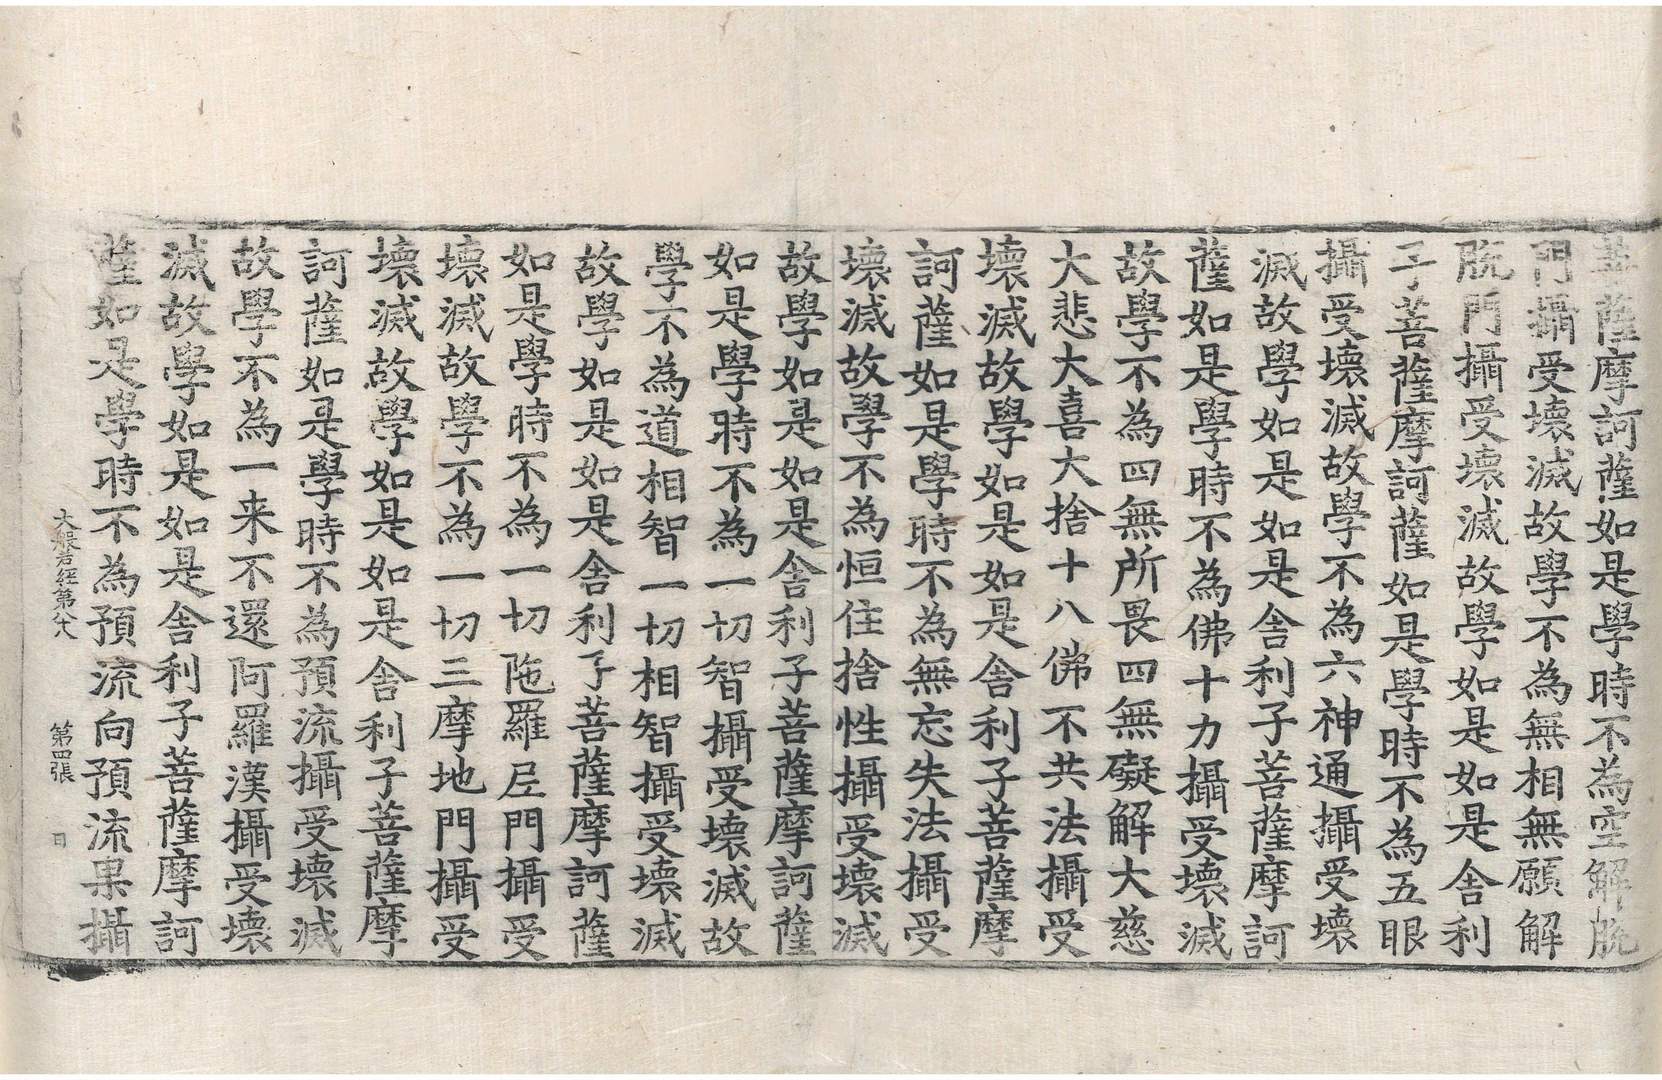 菩薩摩訶薩如是學時不為空解脫
門攝受壞滅故學不為無相無願解
脫門攝受壞滅故學如是如是舍利
子菩薩摩訶薩如是學時不為五眼
攝受壞滅故學不為六神通攝受壞
滅故學如是如是舍利子菩薩摩訶
薩如是學時不為佛十力攝受壞滅
故學不為四無所畏四無礙解大慈
大悲大喜大捨十八佛不共法攝受
壞滅故學如是如是舍利子菩薩摩
訶薩如是學時不為無忘失法攝受
壞滅故學不為恒住捨性攝受壞滅
故學如是如是舍利子菩薩摩訶薩
如是學時不為一切智攝受壞滅故
學不為道相智一切相智攝受壞滅
故學如是如是舍利子菩薩摩訶薩
如是學時不為一切陁羅尼門攝受
壞滅故學不為一切三摩地門攝受
壞滅故學如是如是舍利子菩薩摩
訶薩如是學時不為預流攝受壞滅
故學不為一来不還阿羅漢攝受壞
滅故學如是如是舍利子菩薩摩訶
薩如是學時不為預流向預流果攝
大般若經第八十八 第四張 日